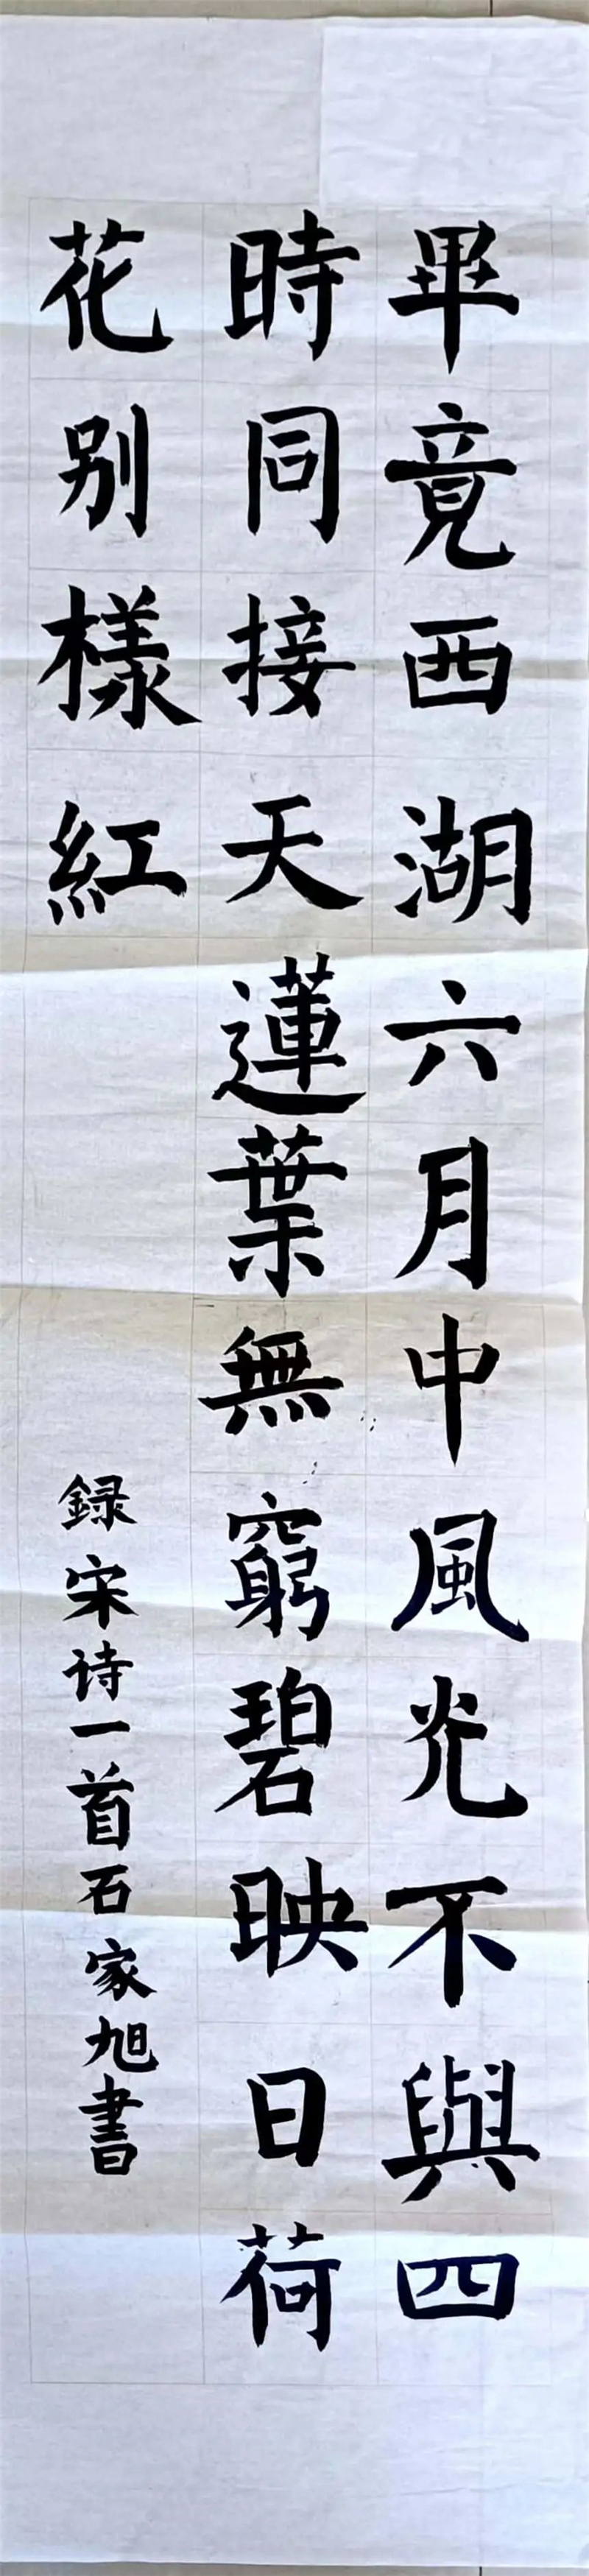 畢竟西湖六月中風光不與四
時同接天蓮葉無窮碧映日荷
花别樣紅
録宋诗一首石家旭書